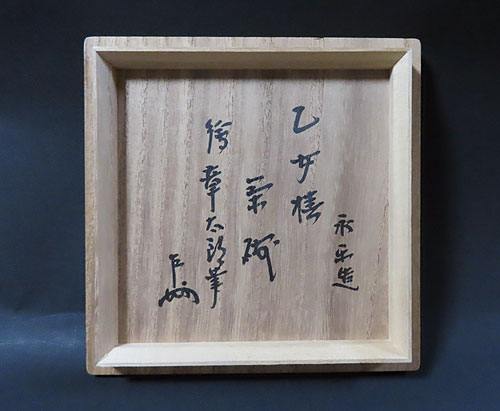 永楽造
乙女椿
茶碗
繪章太郎筆